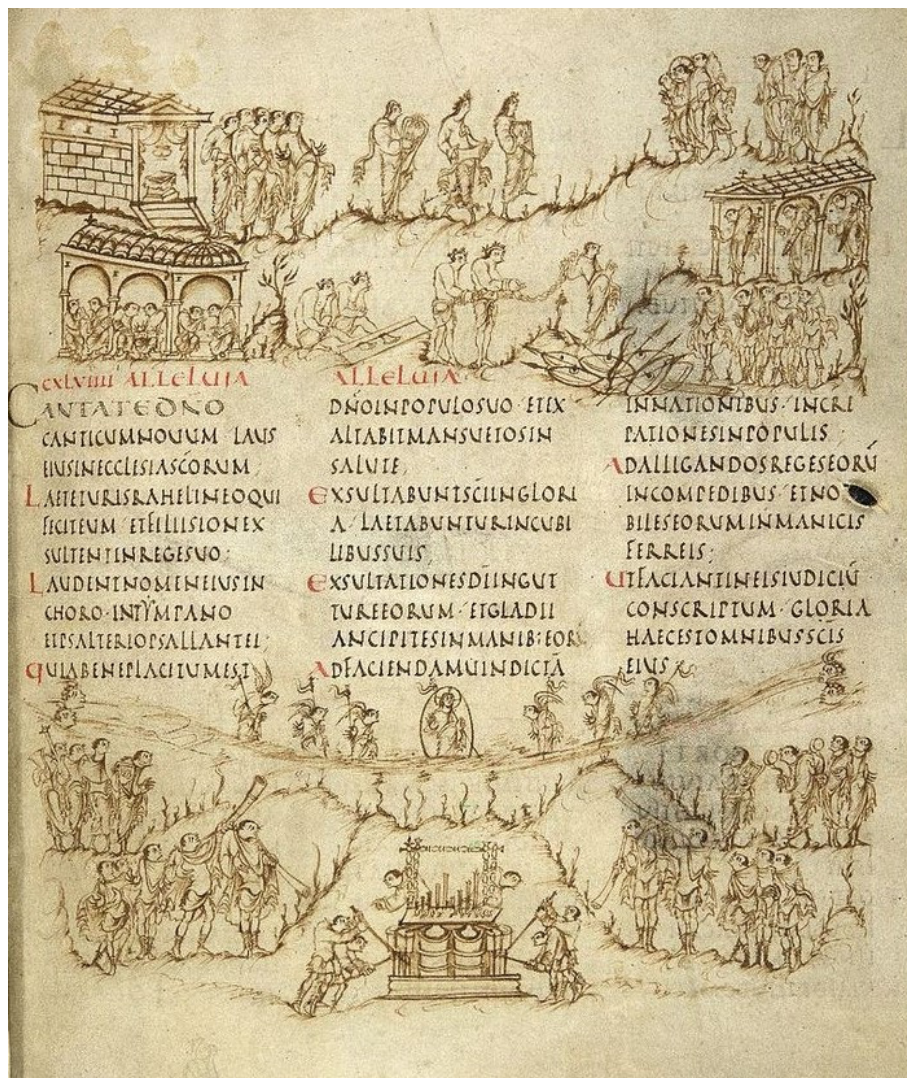 CXLVIIII ALLELUIA
CANTATE DNO
CANTICUMNOUUM LAUS
EIUSINECCLESIASCORUM;
LAETETURISRAHELINEOQUI
FECITEUM · ETFILIISIONEX
SULTENTINREGESUO;
LAUDENTNOMENEIUSIN
CHORO · INTYMPANO
ETPSALTERIOPSALLANTEI;
QUIABENEPLACITUMEST
ALLELUIA·
DNOINPOPULOSUO · ETEX
ALTABITMANSUETOSIN
SALUTE;
EXSULTABUNTSCIINGLORI
A · LAETABUNTURINCUBI
LIBUSSUIS;
EXSULTATIONESDIINGUT
TUREEORUM · ETGLADII
ANCIPITESINMANIB:EOR:
ADFACIENDAMUINDICTA
INNATIONIBUS · INCRE
PATIONESINPOPULIS;
ADALLIGANDOSREGESEORU
INCOMPEDIBUS · ETNO
BILESEORUMINMANICIS
FERREIS;
UTFACIANTINEISIUDICIU
CONSCRIPTUM · GLORIA
HAECESTOMNIBUSSCIS
EIUS